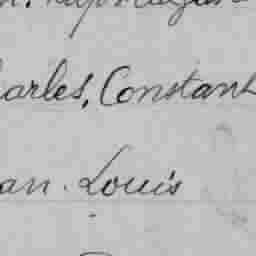 arles, Constant
an. Louis